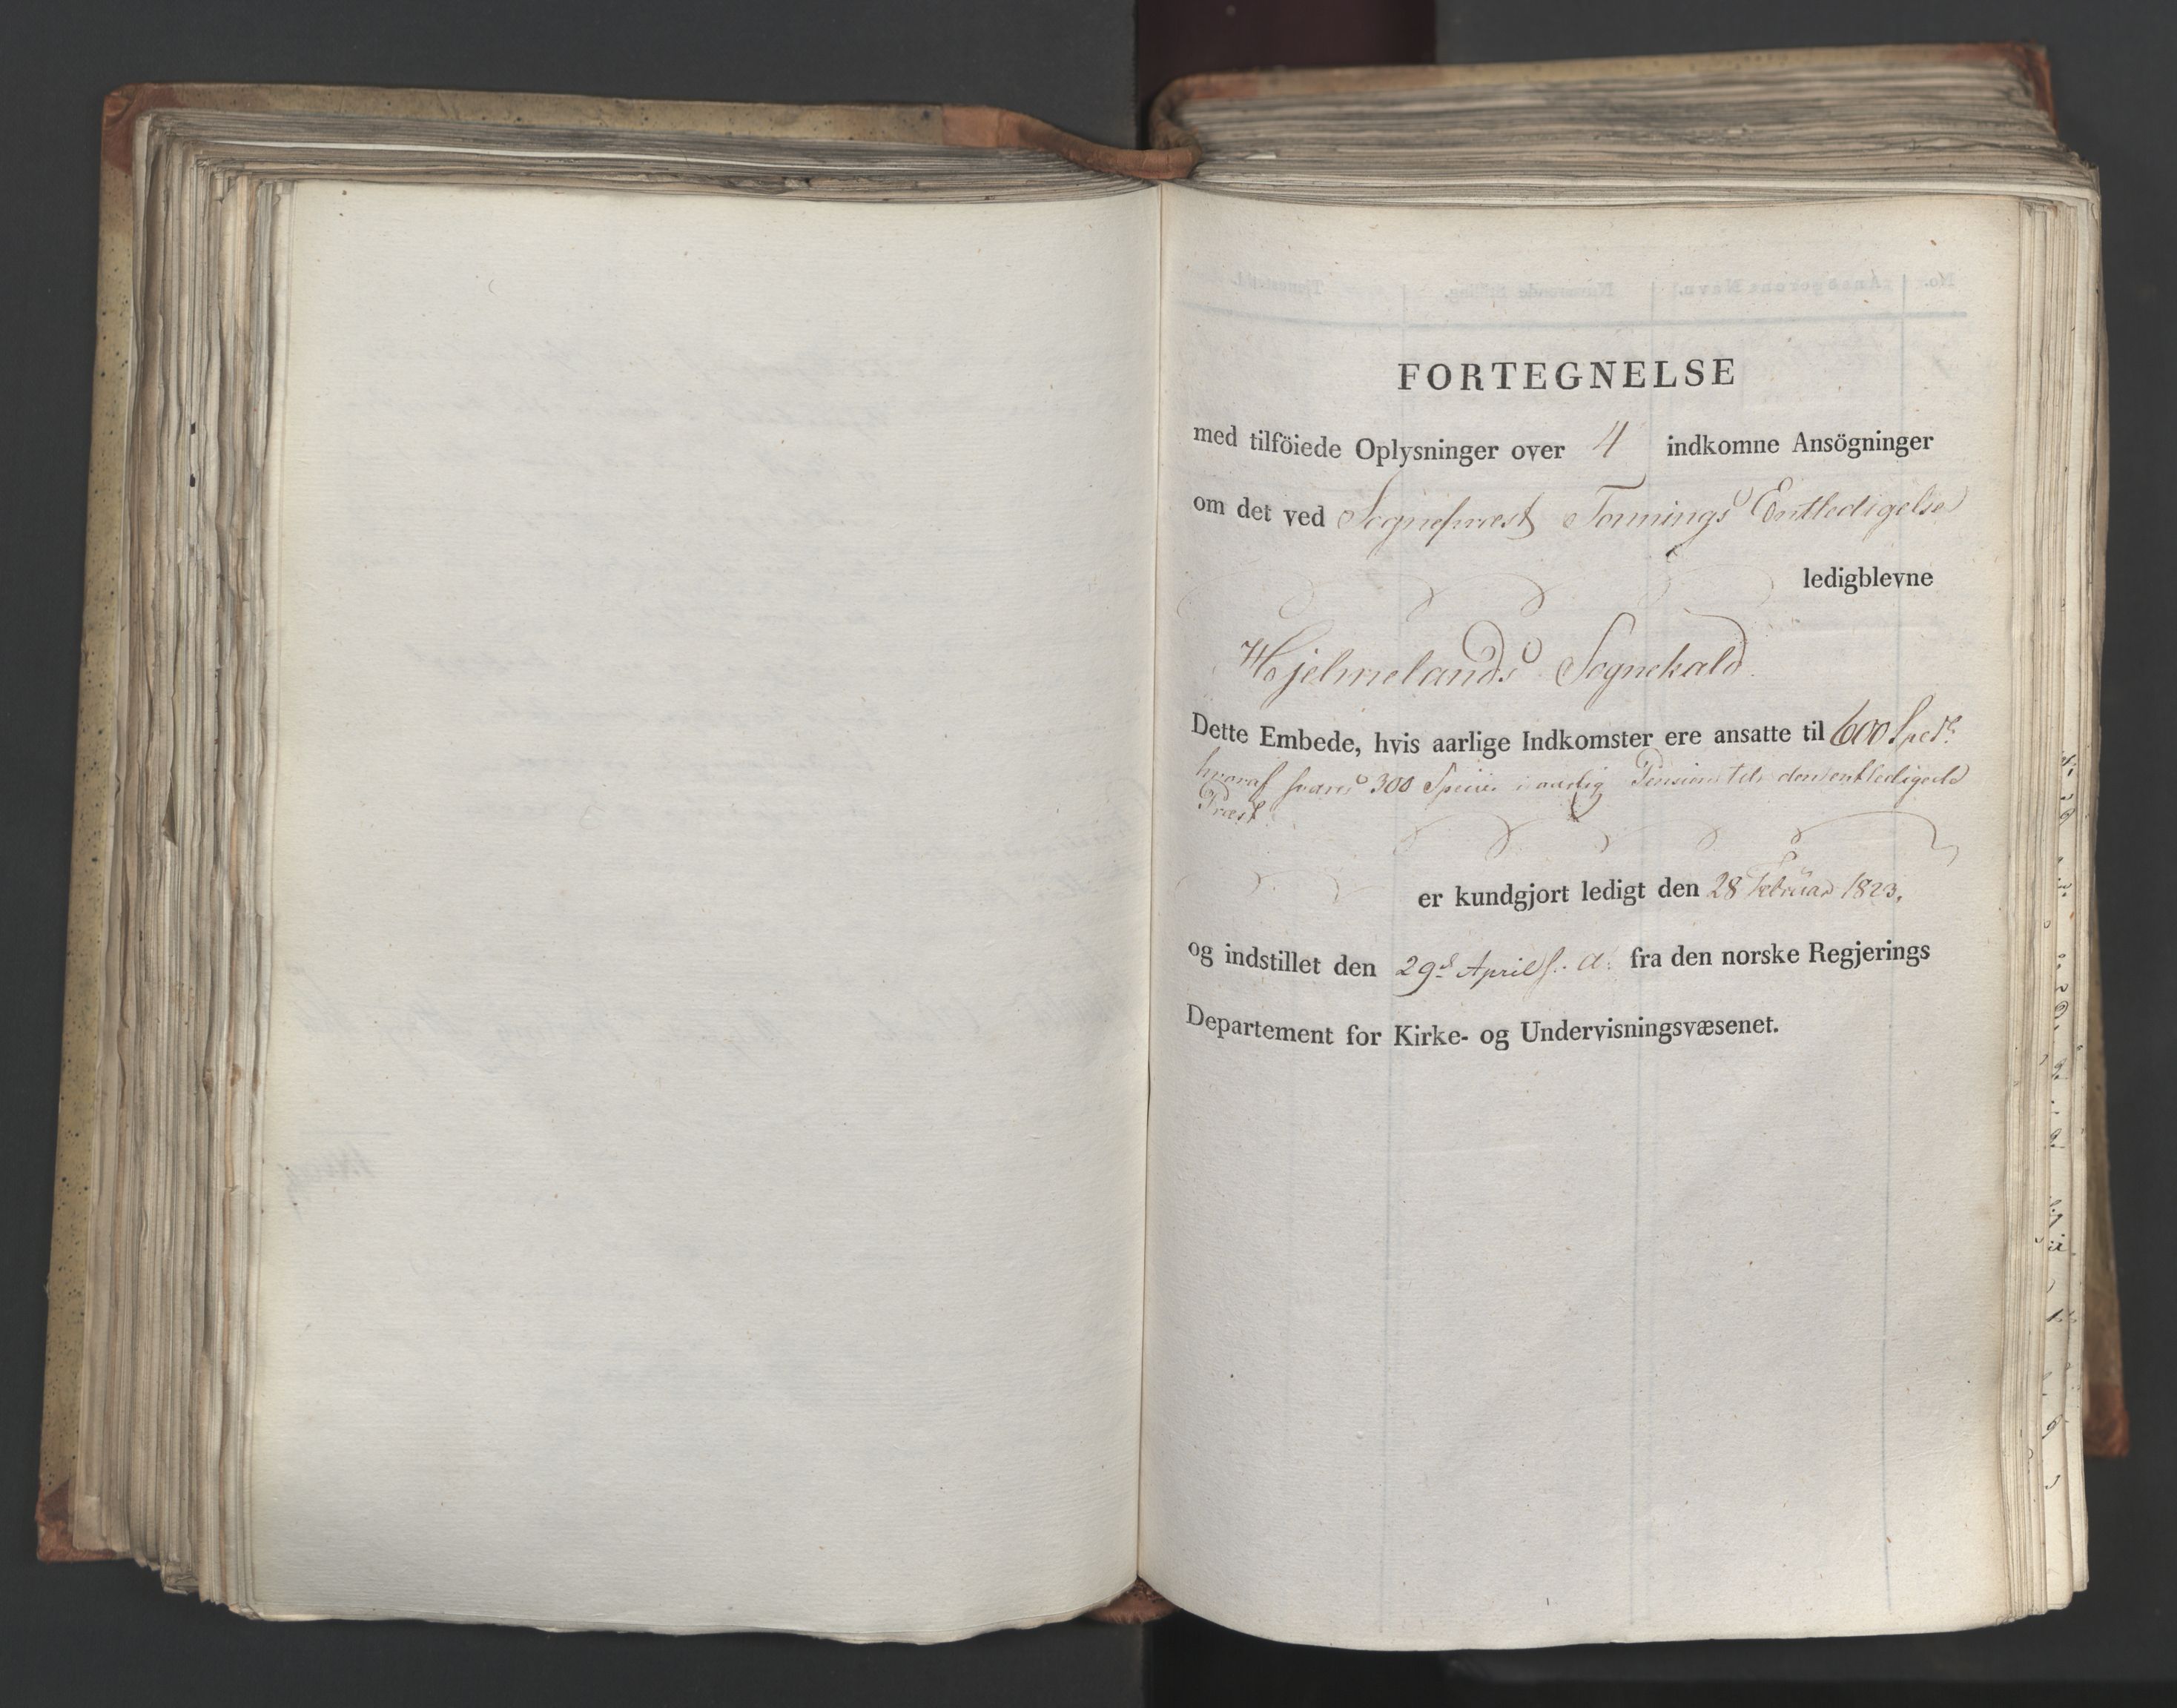 FORTEGNELSE
med tilföiede Oplysninger over 4 indkomne Ansögninger
om det ved Sognepræst Tonnings Entledigelse
ledigblevne
Hjelmelands Sognekald.
Dette Embede, hvis aarlige Indkomster ere ansatte til 600 Spd.
hvoraf svares 300 Specier i aarlig Pension til den entledigede
Præst
er kundgjort ledigt den 28 Februar 1823,
og indstillet den 29d April s. a. fra den norske Regjerings
Departement for Kirke- og Undervisningsvæsenet.